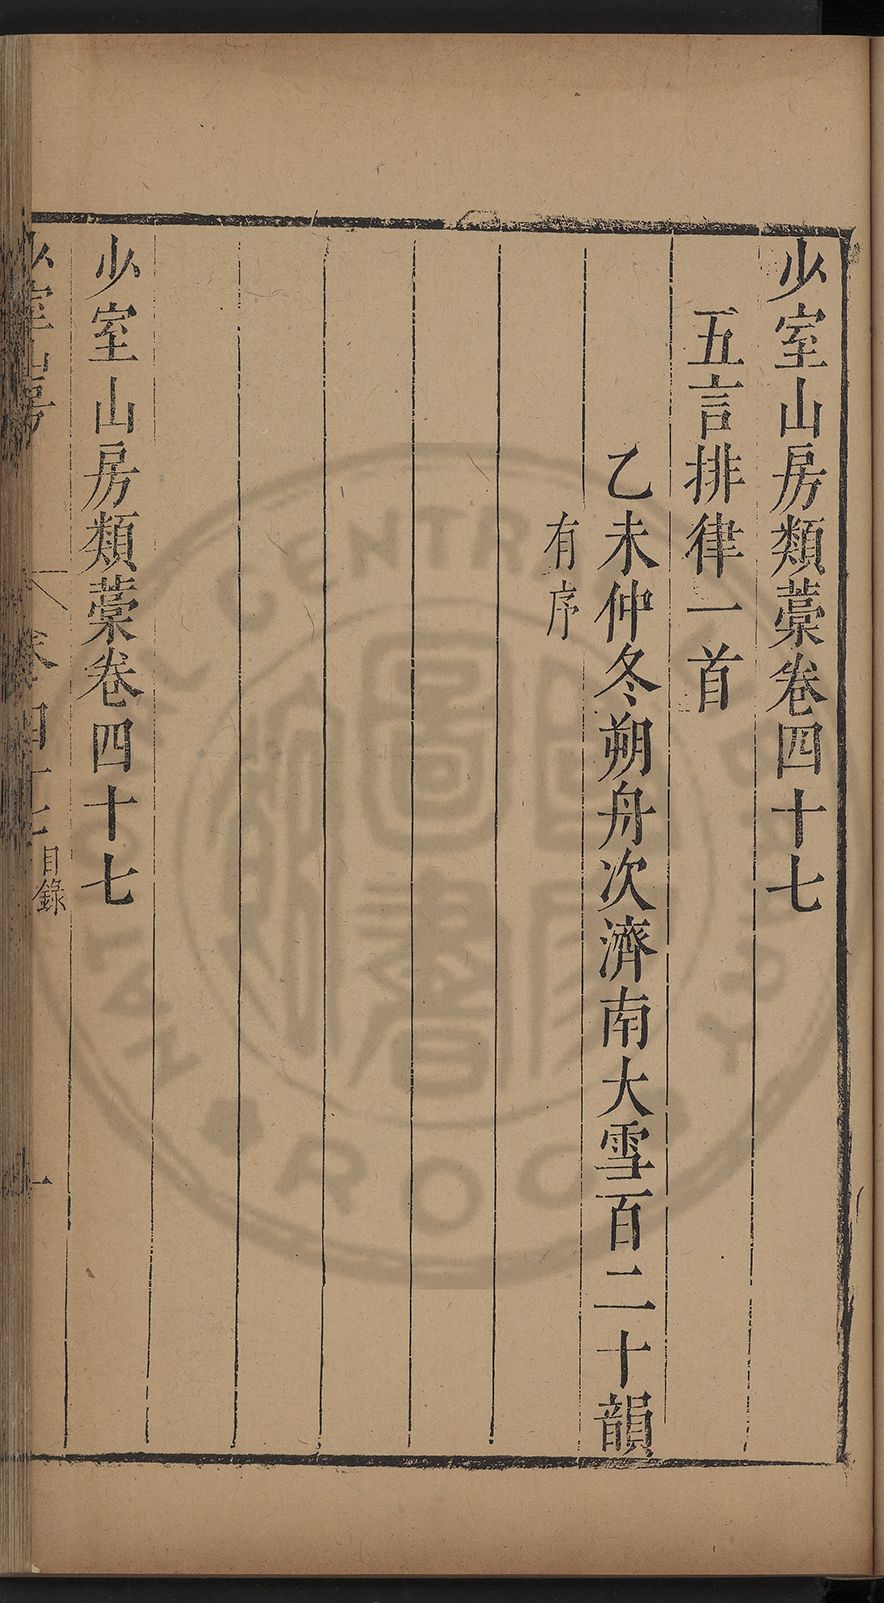 少室山房類藁卷四十七
五言排律一首
乙未仲冬朔舟次濟南大雪百二十韻
有序
少室山房類藁卷四十七
少室山房 卷四十七 目錄 一